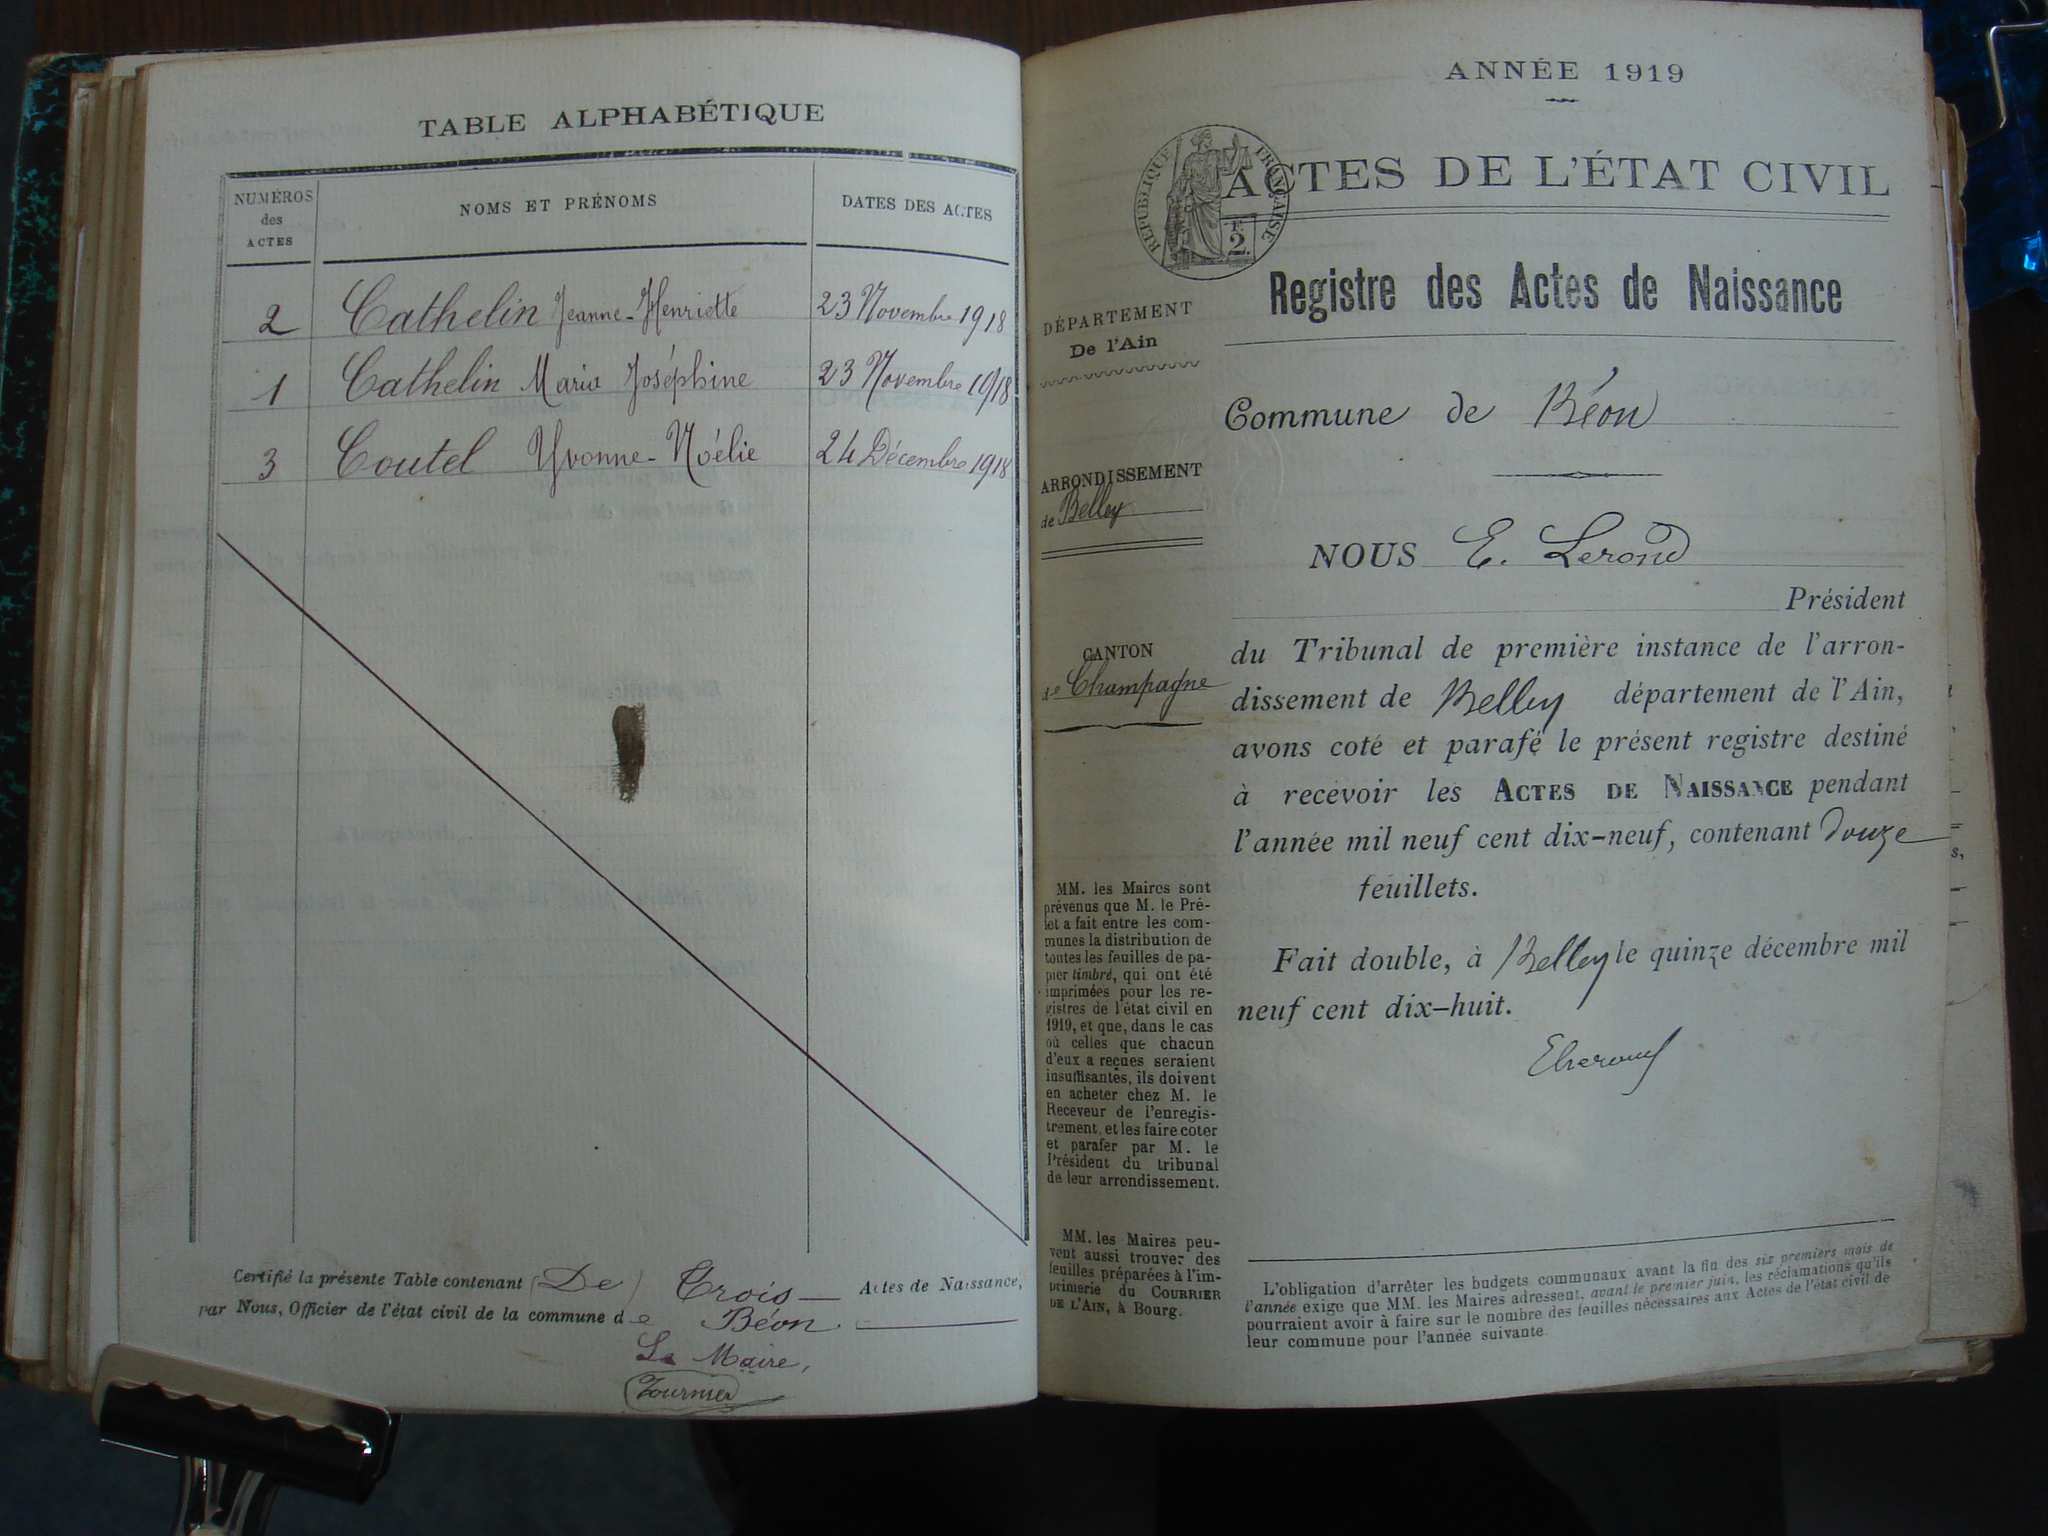 TABLE ALPHABÉTIQUE
NUMÉROS des ACTES
NOMS ET PRÉNOMS
DATES DES ACTES
2 Cathelin Jeanne-Henriette 23 Novembre 1918
1 Cathelin Maria Joséphine 23 Novembre 1918
3 Coutel Yvonne-Noélie 24 Décembre 1918
Certifié la présente Table contenant (De) Trois Actes de Naissance,
par Nous, Officier de l'état civil de la commune de Béon.
Le Maire,
Tournier
ANNÉE 1919
RÉPUBLIQUE FRANÇAISE
2
ACTES DE L'ÉTAT CIVIL
Registre des Actes de Naissance
DÉPARTEMENT
De l'Ain
Commune de Béon
ARRONDISSEMENT
de Belley
NOUS E. Lerond
Président
CANTON
de Champagne
du Tribunal de première instance de l'arron-
dissement de Belley département de l'Ain,
avons coté et parafé le présent registre destiné
à recevoir les ACTES DE NAISSANCE pendant
l'année mil neuf cent dix-neuf, contenant douze
feuillets.
Fait double, à Belley le quinze décembre mil
neuf cent dix-huit.
MM. les Maires sont
prévenus que M. le Pré-
fet a fait entre les com-
munes la distribution de
toutes les feuilles de pa-
pier timbré, qui ont été
imprimées pour les re-
gistres de l'état civil en
1919, et que, dans le cas
où celles que chacun
d'eux a reçues seraient
insuffisantes, ils doivent
en acheter chez M. le
Receveur de l'enregis-
trement, et les faire coter
et parafer par M. le
Président du tribunal
de leur arrondissement.
MM. les Maires peu-
vent aussi trouver des
feuilles préparées à l'im-
primerie du COURRIER
DE L'AIN, à Bourg.
L'obligation d'arrêter les budgets communaux avant la fin des six premiers mois de
l'année exige que MM. les Maires adressent, avant le premier juin, les réclamations qu'ils
pourraient avoir à faire sur le nombre des feuilles nécessaires aux Actes de l'état civil de
leur commune pour l'année suivante.